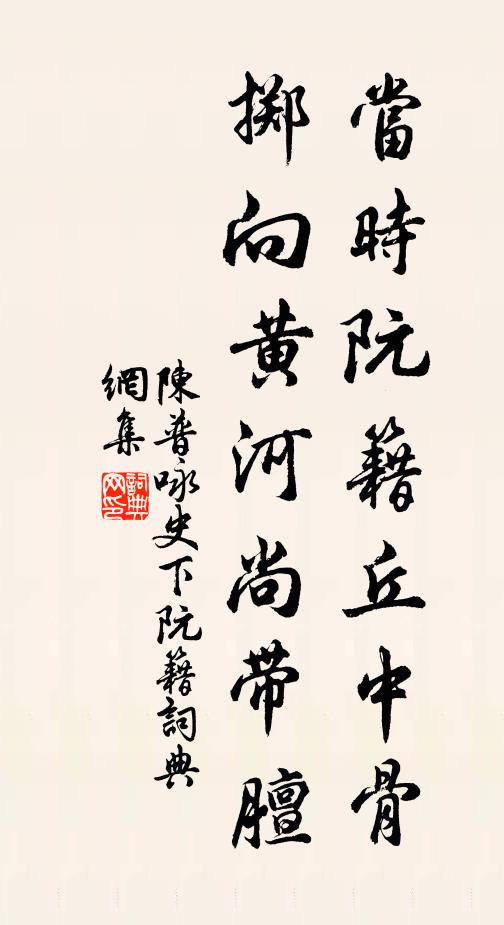 當時阮籍丘中骨
擲向黃河尚帶膻
陳普咏史下阮籍詞典
網集
詞典
网印